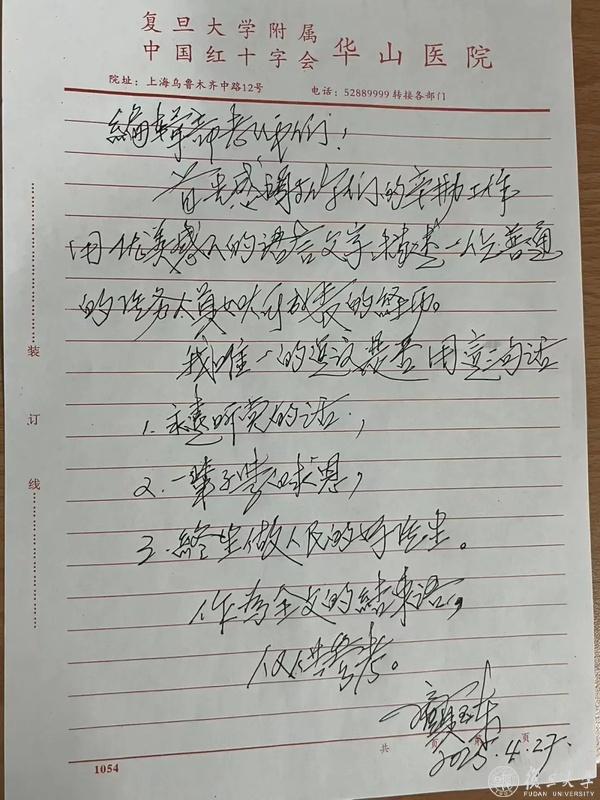 复旦大学附属
中国红十字会华山医院
院址：上海乌鲁木齐中路12号 电话：52889999 转接各部门
编辑部老师们：
首先感谢你们的辛勤工作
用优美感人的语言文字描述一位普通
的医务人员如何成长的经历。
我唯一的建议是否用这三句话
1. 永远听党的话，
2. 一辈子学白求恩，
3. 终生做人民的好医生。
作为全文的结束语，
仅供参考。
2025.4.27.
装
订
线
共 页 第 页
1054
復旦大學
FUDAN UNIVERSITY